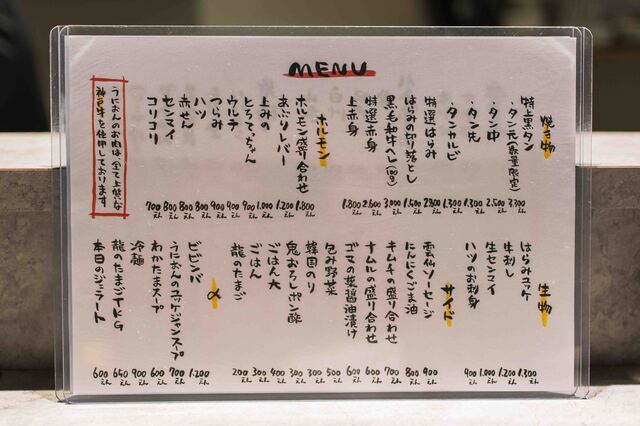 MENU
焼き物
特上黒タン
・タン元(数量限定) 3.300えん
・タン中 2.500えん
・タン先 1.300えん
・タンカルビ 1.300えん
特選はらみ 2.800えん
はらみの切り落とし 1.500えん
黒毛和牛ヘレ(100g) 3.000えん
特選赤身 2.600えん
上赤身 1.800えん
ホルモン
ホルモン盛り合わせ 1.800えん
あぶりレバー 1.200えん
上みの 1.000えん
とろてっちゃん 900えん
ウルテ 900えん
つらみ 800えん
ハツ 800えん
赤せん 800えん
センマイ 800えん
コリコリ 700えん
うにおんのお肉は、全て上質な
神戸牛を使用しております
生物
はらみユッケ 1.300えん
牛刺し 1.200えん
生センマイ 1.000えん
ハツのお刺身 900えん
サイド
雲仙ソーセージ 900えん
にんにくごま油 800えん
キムチの盛り合わせ 700えん
ナムルの盛り合わせ 600えん
ゴマの葉醤油漬け 600えん
包み野菜 500えん
韓国のり 300えん
鬼おろしポン酢 300えん
ごはん大 400えん
ごはん 300えん
龍のたまご 200えん
〆
ビビンバ 1.200えん
うにおんのユッケジャンスープ 700えん
わかたまスープ 600えん
冷麺 900えん
龍のたまごTKG 650えん
本日のジェラート 600えん